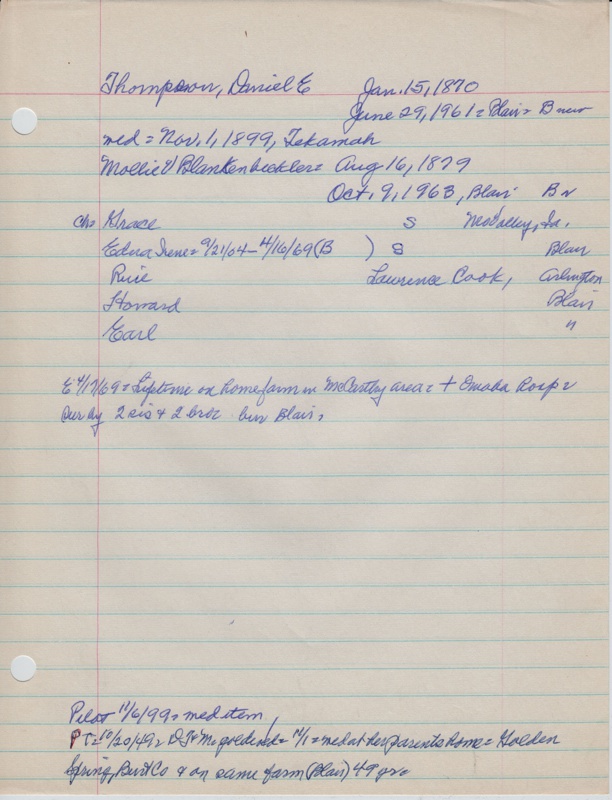 Thompson, Daniel E Jan. 15, 1870
June 29, 1961 = Blair = B
md = Nov. 1, 1899, Tekamah
Mollie V Blankenbeckler = Aug 16, 1879
Oct. 9, 1963, Blair B
ch = Grace S Mo Valley, Ia.
Edna Irene = 9/21/04 - 4/16/69 (B ) S Blair
Lawrence Cook, Arlington
Howard Blair
Earl "
E 4/17/69 = Lifetime on home farm in McCarthy area = + Omaha Hosp =
Sur by 2 sis + 2 bro = bur Blair,
Pilot 11/6/99 = med item,
PT = 10/20/49 = D.T + M gold wed = 11/1 = med at her parents home = Golden
Spring, Burt Co + on same farm (Blair) 49 yr =